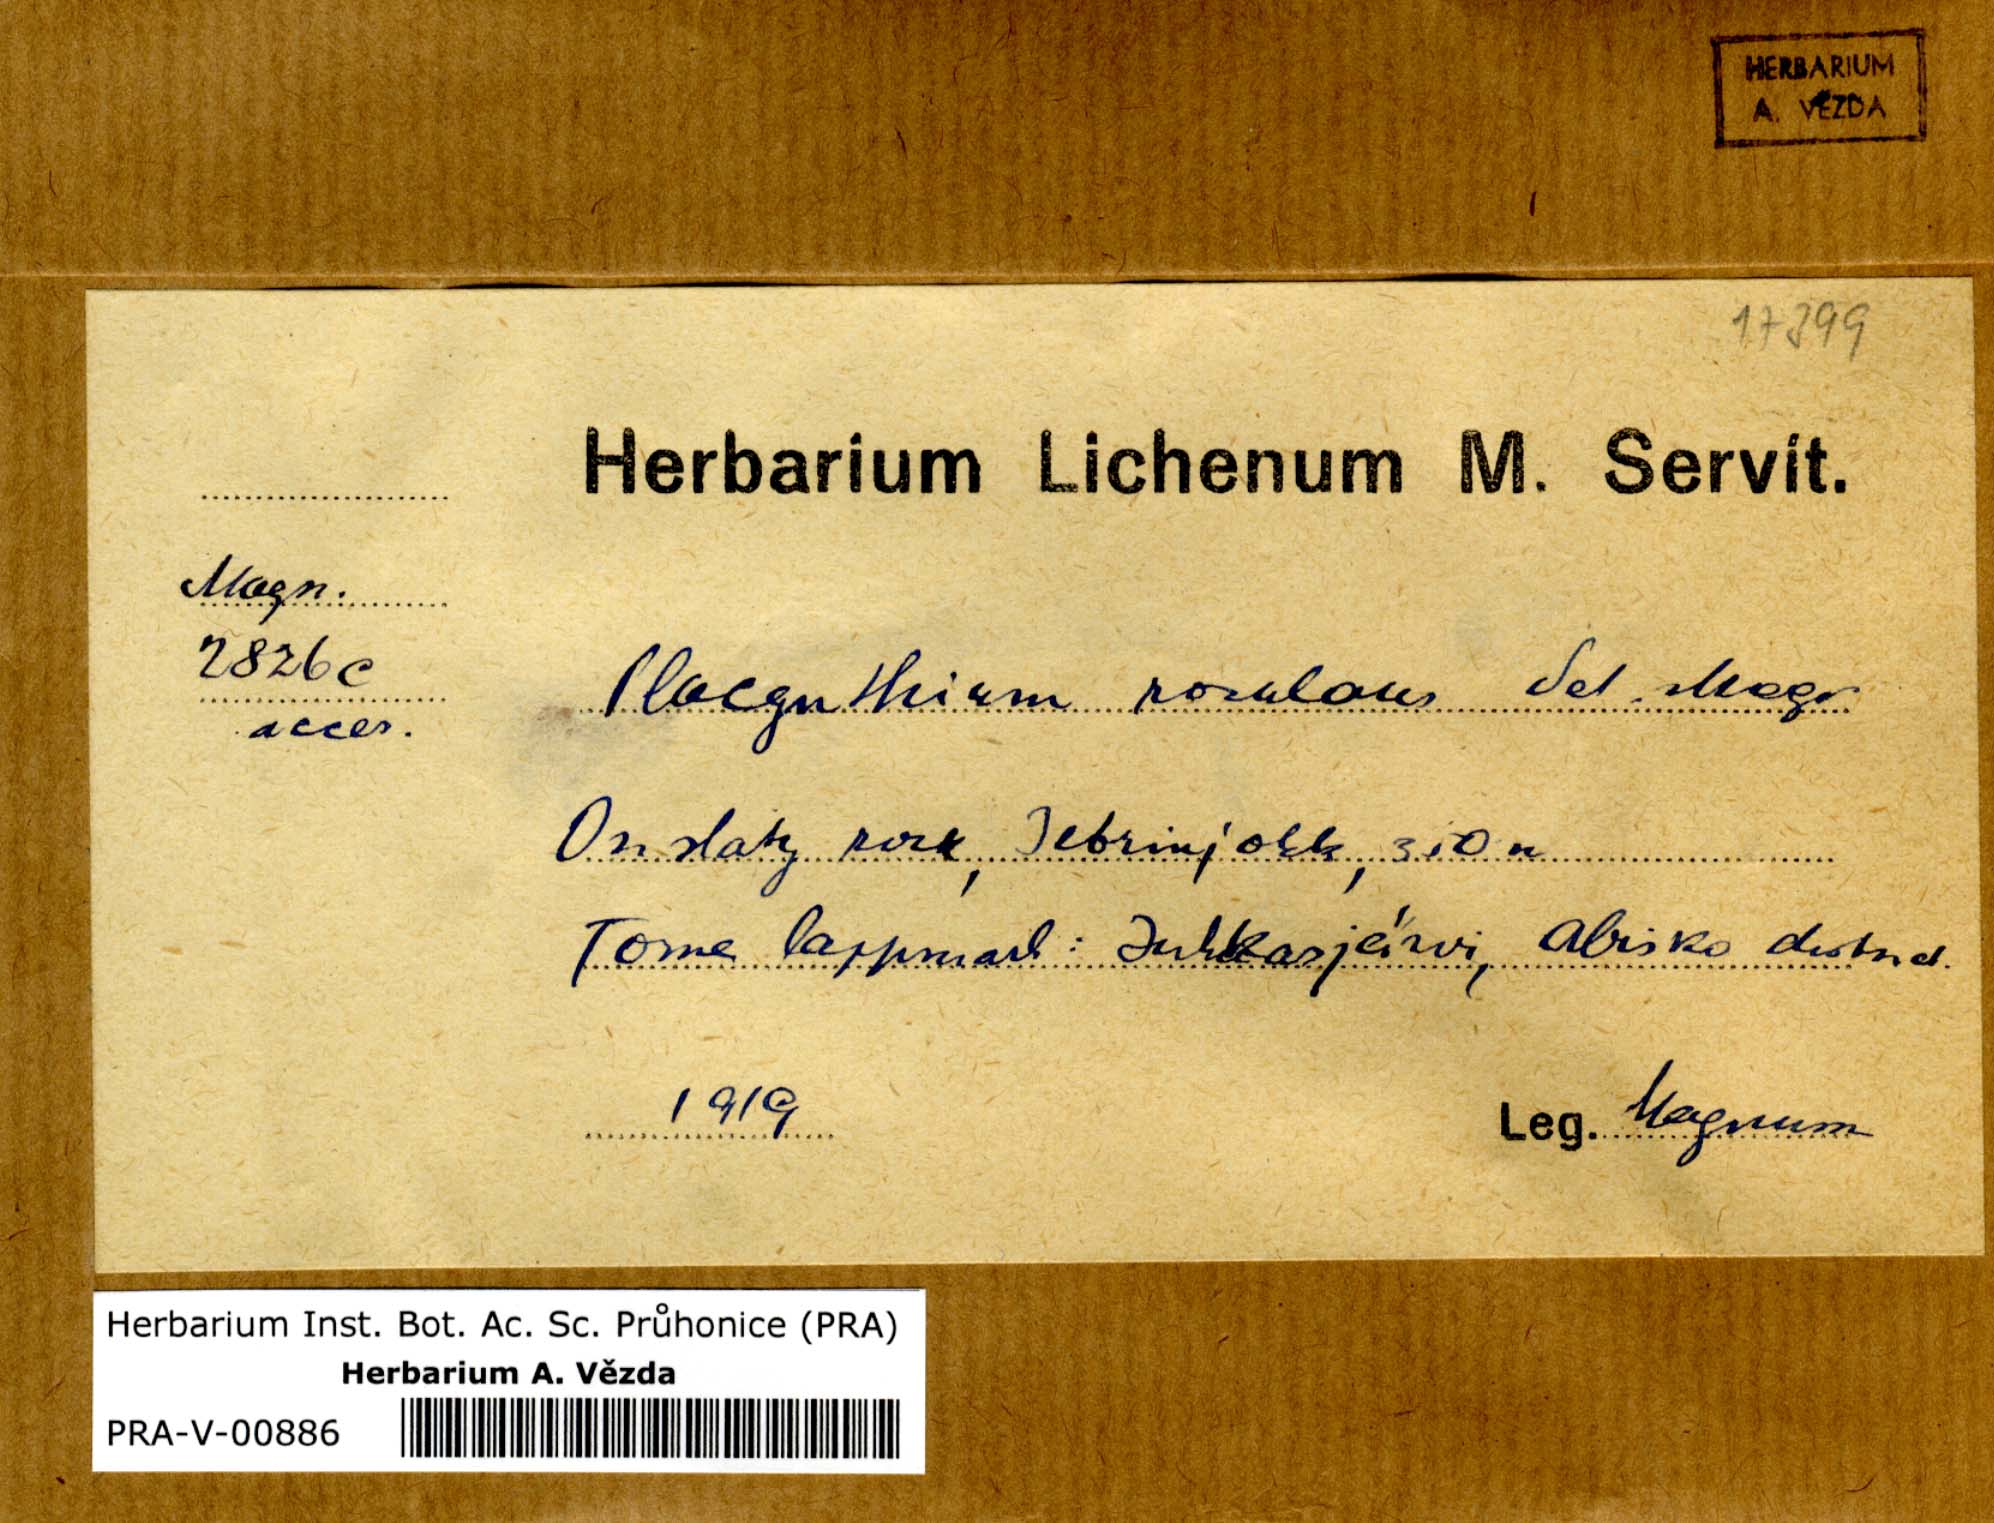 HERBARIUM
A. VĚZDA
17399
Herbarium Lichenum M. Servít.
Magn.
2826c
acces.
Placynthium rosulans Det. Magn
On slaty rock, 310 m
Torne lappmark: Jukkasjärvi, Abisko district.
1919
Leg. Magnum
Herbarium Inst. Bot. Ac. Sc. Průhonice (PRA)
Herbarium A. Vězda
PRA-V-00886